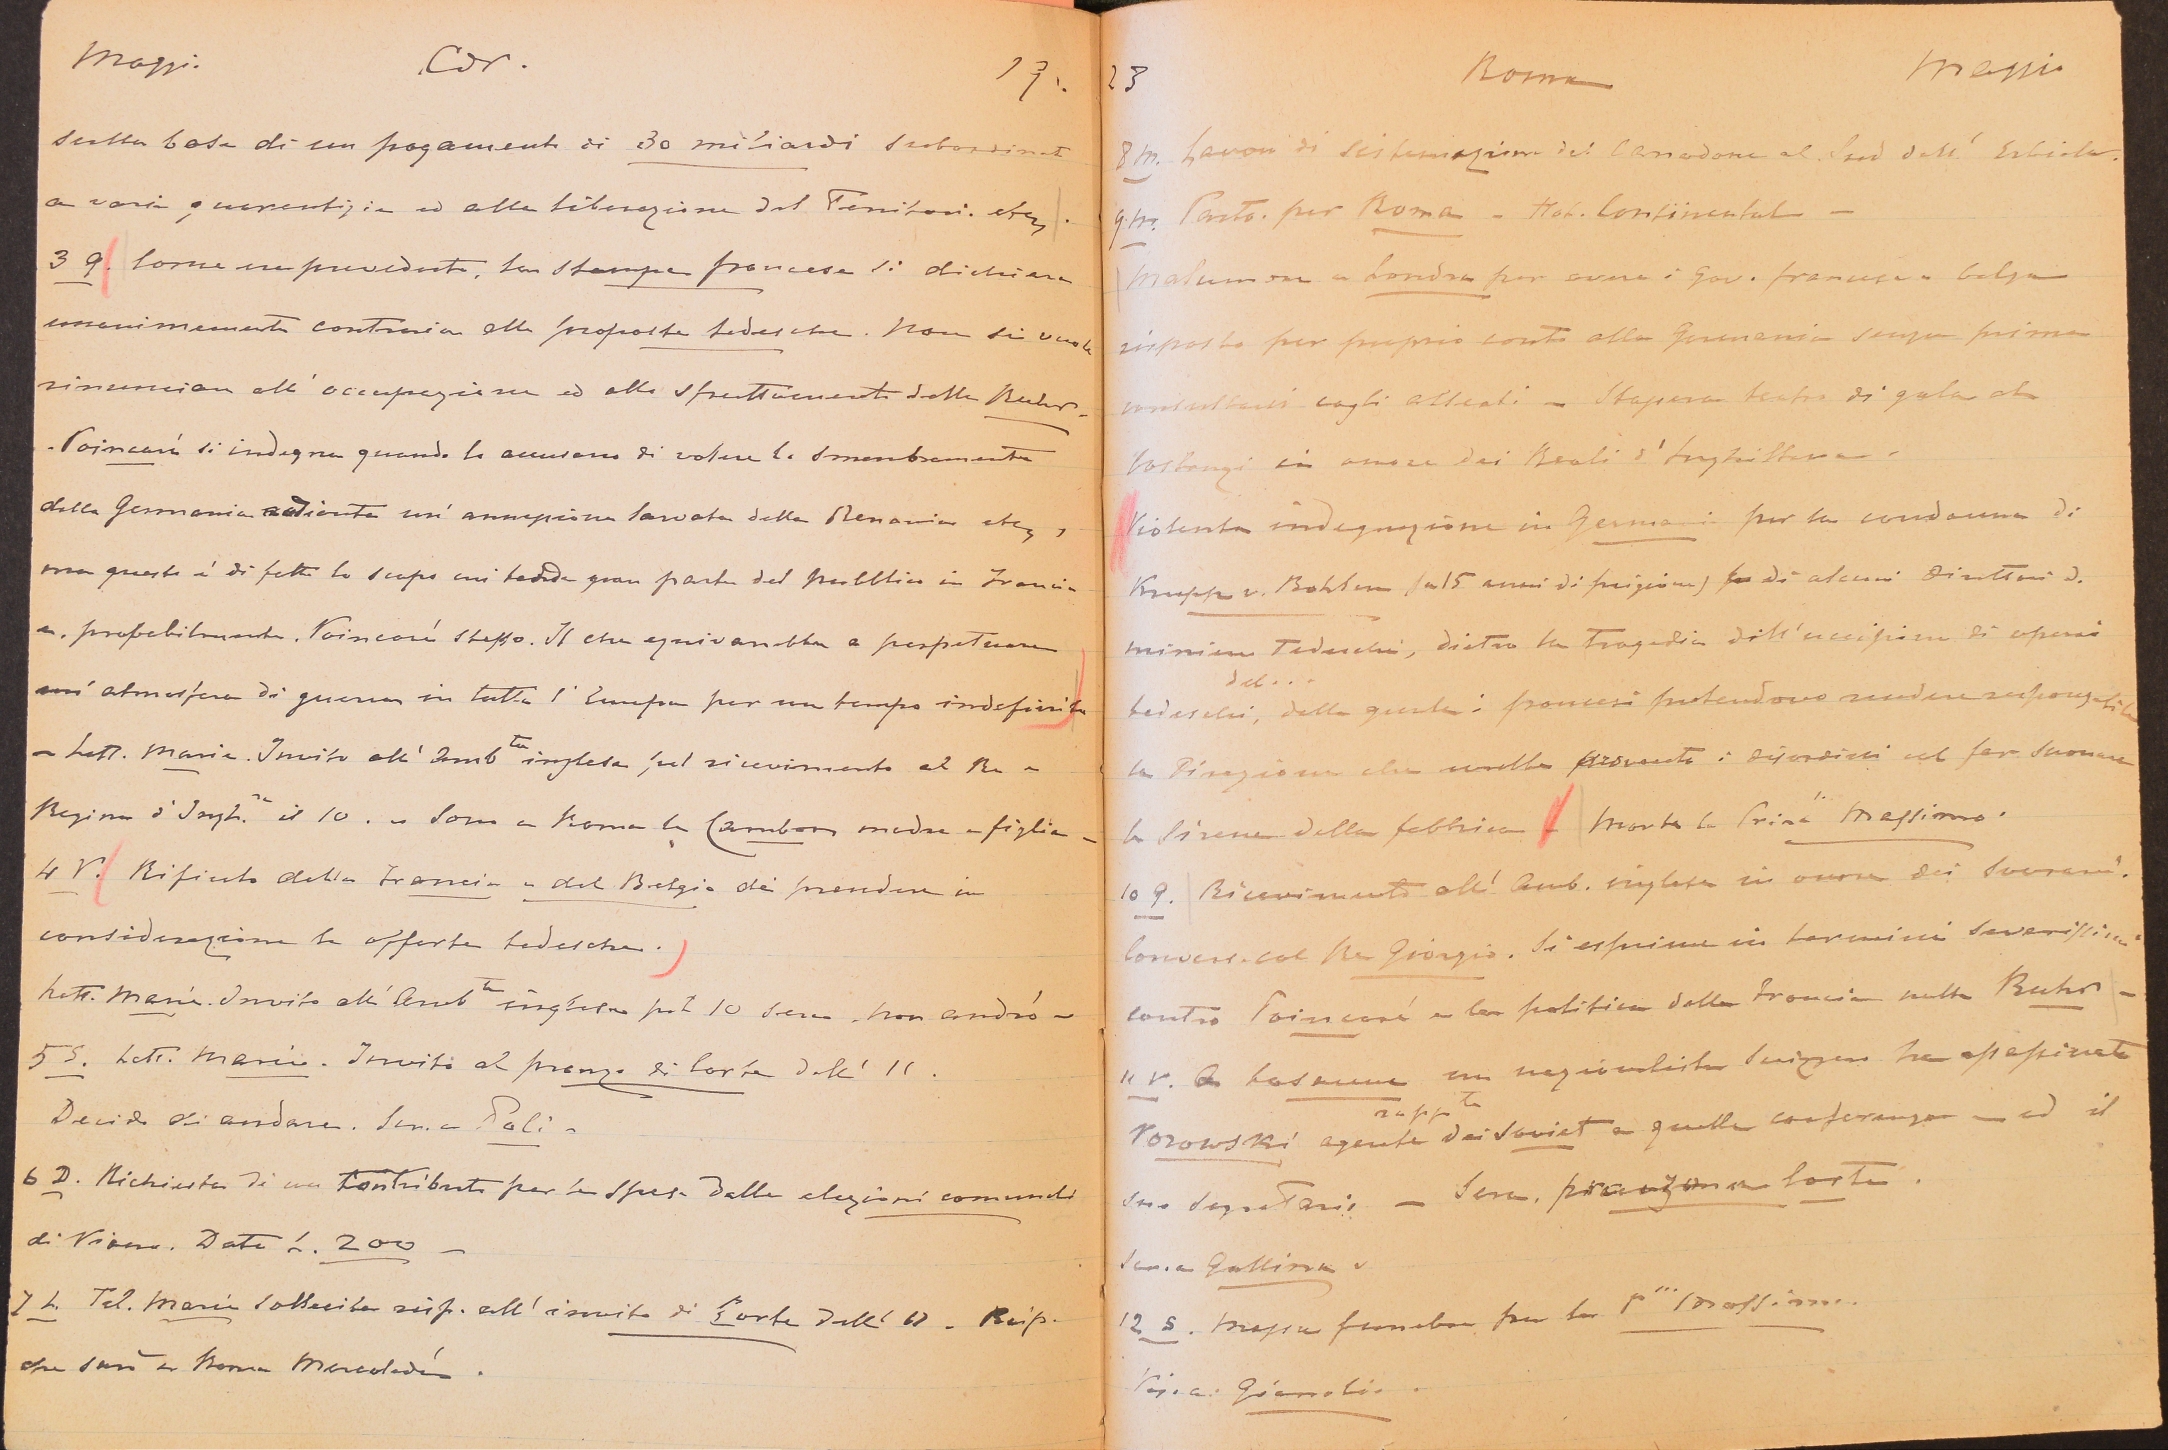 Maggio Cor. 19
sulla base di un pagamento di 30 miliardi subordinato
a varie guarentigie ed alla liberazione del Territori. etc,
3 G. Come era prevedute, la stampa francese si dichiara
unanimemente contraria alle proposte tedesche. Non si vuole
rinunciare all'occupazione ed allo sfruttamento della Ruhr.
- Poincaré si indegna quando lo accusano di volere lo smembramento
della Germania mediante un'annessione larvata della Renania etc,
ma questo è di fatto lo scopo cui tende gran parte del pubblico in Francia
e, probabilmente, Poincaré stesso. Il che equivarrebbe a perpetuare
un'atmosfera di guerra in tutta l'Europa per un tempo indefinito
- Lett. Maria. Invito all'Amb.ta inglese pel ricevimento al Re e
Regina d'Ingh.ra il 10. - Sono a Roma le Cambon madre e figlia -
4 V. Rifiuto della Francia e del Belgio di prendere in
considerazione le offerte tedesche.
Lett. Maria. Invito all'Amb.ta inglese pel 10 sera. Non andrò -
5 S. Lett. Maria. Invito al pranzo di Corte dell'11.
Decido di andare. Scr. a Poli -
6 D. Richiesta di un contributo per le spese delle elezioni comunali
di Vivaro. Dato L. 200 -
7 L. Tel. Maria sollecita risp. all'invito di Corte dell'11 - Risp.
che sarò a Roma Mercoledì.
23 Roma Maggio
8 M. Lavori di sistemazione del al Sud dell'
9 M. Parto per Roma - Hot. Continental -
Malumore a Londra per avere i Gov. francese e belga
risposto per proprio conto alla Germania senza prima
consultarsi cogli alleati - Stasera teatro di gala al
Costanzi in onore dei Reali d'Inghilterra.
Violenta indegnazione in Germania per la condanna di
Krupp v. Bohlen (a 15 anni di prigione) di alcuni direttori di
miniere Tedeschi, dietro la tragedia dell'uccisione di operai
del...
tedeschi, della quale i francesi pretendono rendere responsabile
la Direzione che avrebbe provocato i disordini col far suonare
le sirene della fabbrica - Morta la Princ.a Massimo.
10 G. Ricevimento all'Amb. inglese in onore dei Sovrani.
Convers. col Re Giorgio. Si esprime in termini severissimi
contro Poincaré e la politica della Francia nella Ruhr -
11 V. A Losanna un nazionalista svizzero ha assassinato
rapp.te
Vorowski agente dei Soviet a quella conferenza - ed il
suo segretario - Sera, pranzo a Corte.
Scr. a Gallina -
12 S. Messa funebre per la P.ssa Massimo.
Vis. a Gianotti.